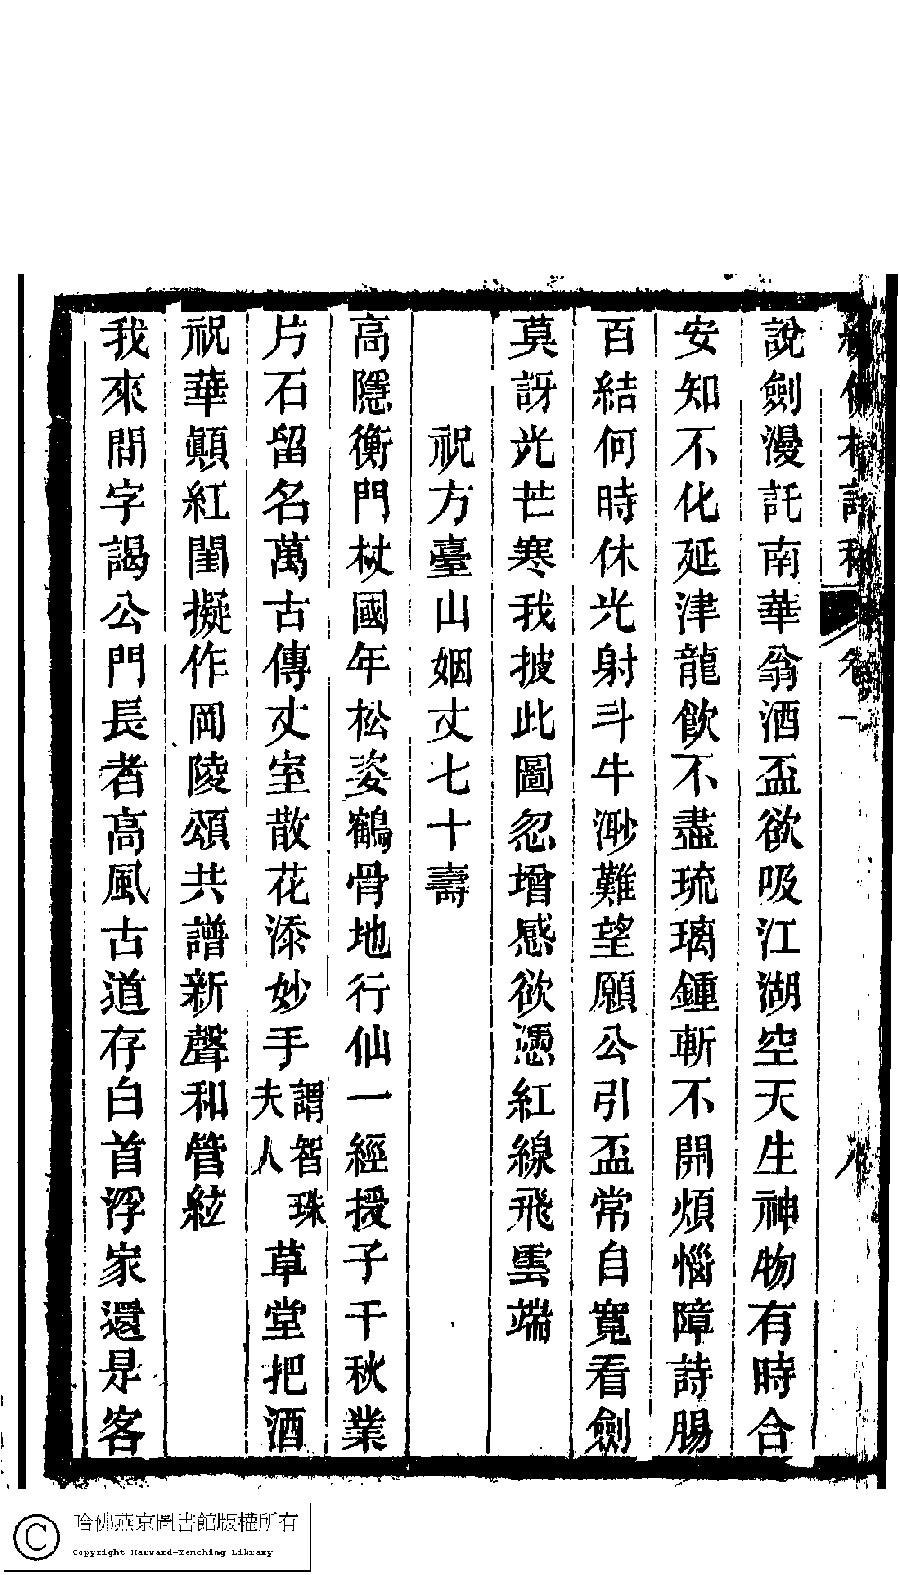 說劍漫託南華翁酒盃欲吸江湖空天生神物有時合
安知不化延津龍飲不盡琉璃鍾斬不開煩惱障詩腸
百結何時休光射斗牛渺難望願公引盃常自寬看劍
莫訝光芒寒我披此圖忽增感欲慿紅線飛雲端
祝方臺山姻丈七十壽
高隱衡門杖國年松姿鶴骨地行仙一經授子千秋業
片石留名萬古傳丈室散花添妙手謂智珠夫人草堂把酒
祝華顚紅閨擬作岡陵頌共譜新聲和管絃
我來問字謁公門長者高風古道存白首浮家還是客
哈佛燕京圖書館版權所有
Copyright Harvard-Yenching Library